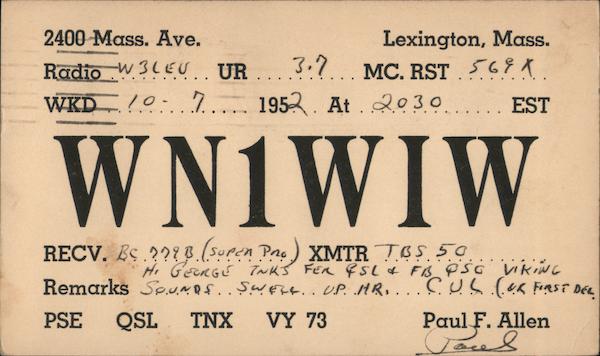 2400 Mass. Ave. Lexington, Mass.
Radio W3LEU UR 3.7 MC. RST 569X
WKD 10-7 1952 At 2030 EST
WN1WIW
RECV. BC 779B (SUPER PRO) XMTR TBS 50
HI GEORGE TNKS FER QSL & FB QSO VIKING
Remarks SOUNDS SWELL UP HR. CUL (UR FIRST DEL.
PSE QSL TNX VY 73 Paul F. Allen
Paul